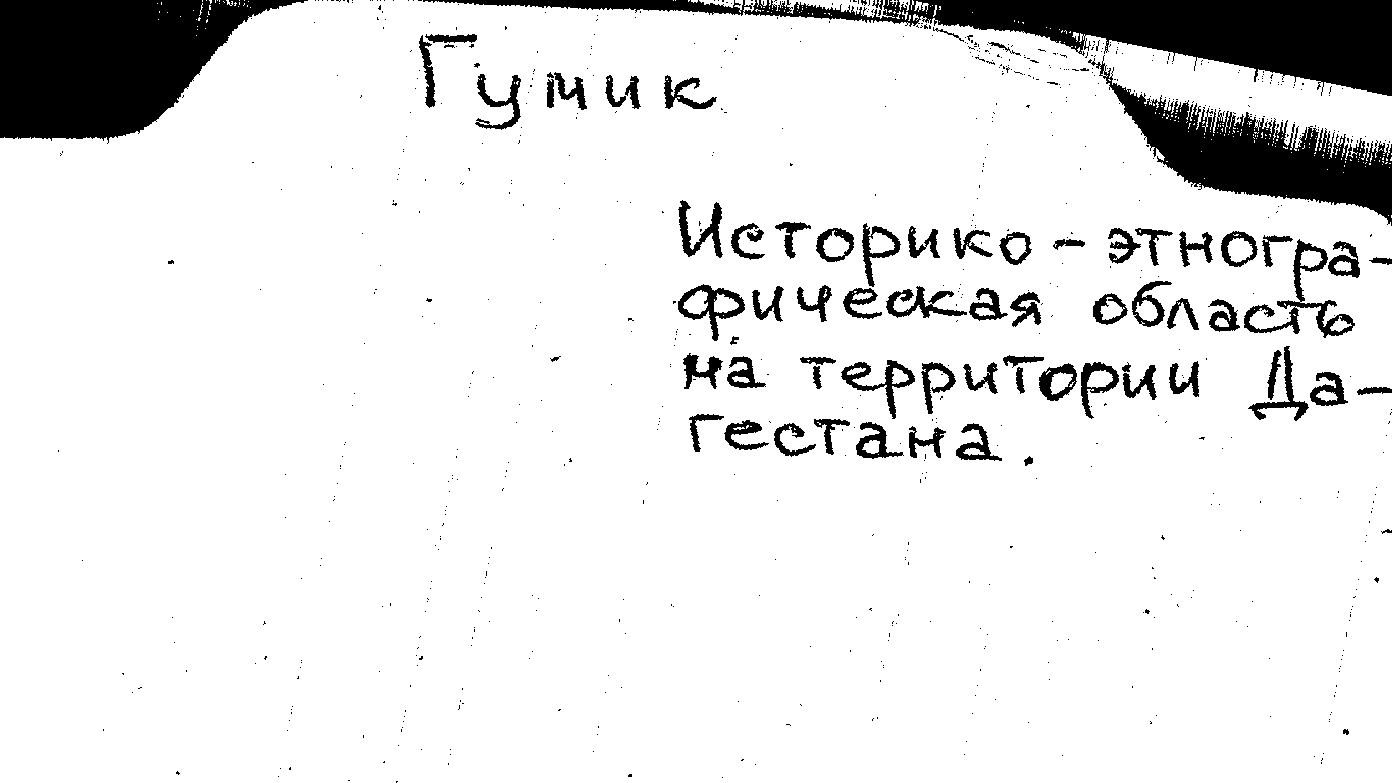 Гумик
Историко-этногра-
фическая область
на территории Да-
гестана.